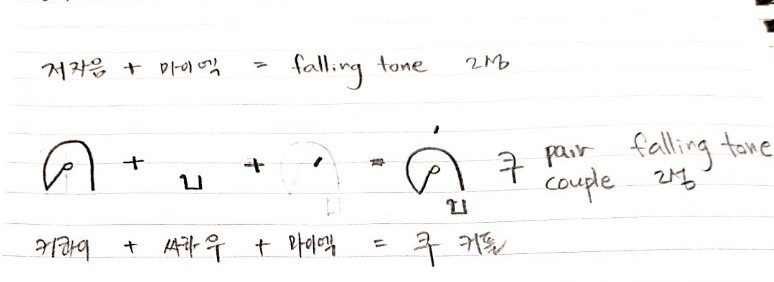 저자음 + 마이엑 = falling tone 2성
ค + ู + ่ = คู่ 쿠 pair couple falling tone 2성
커콰이 + 싸라 우 + 마이엑 = 쿠 커플